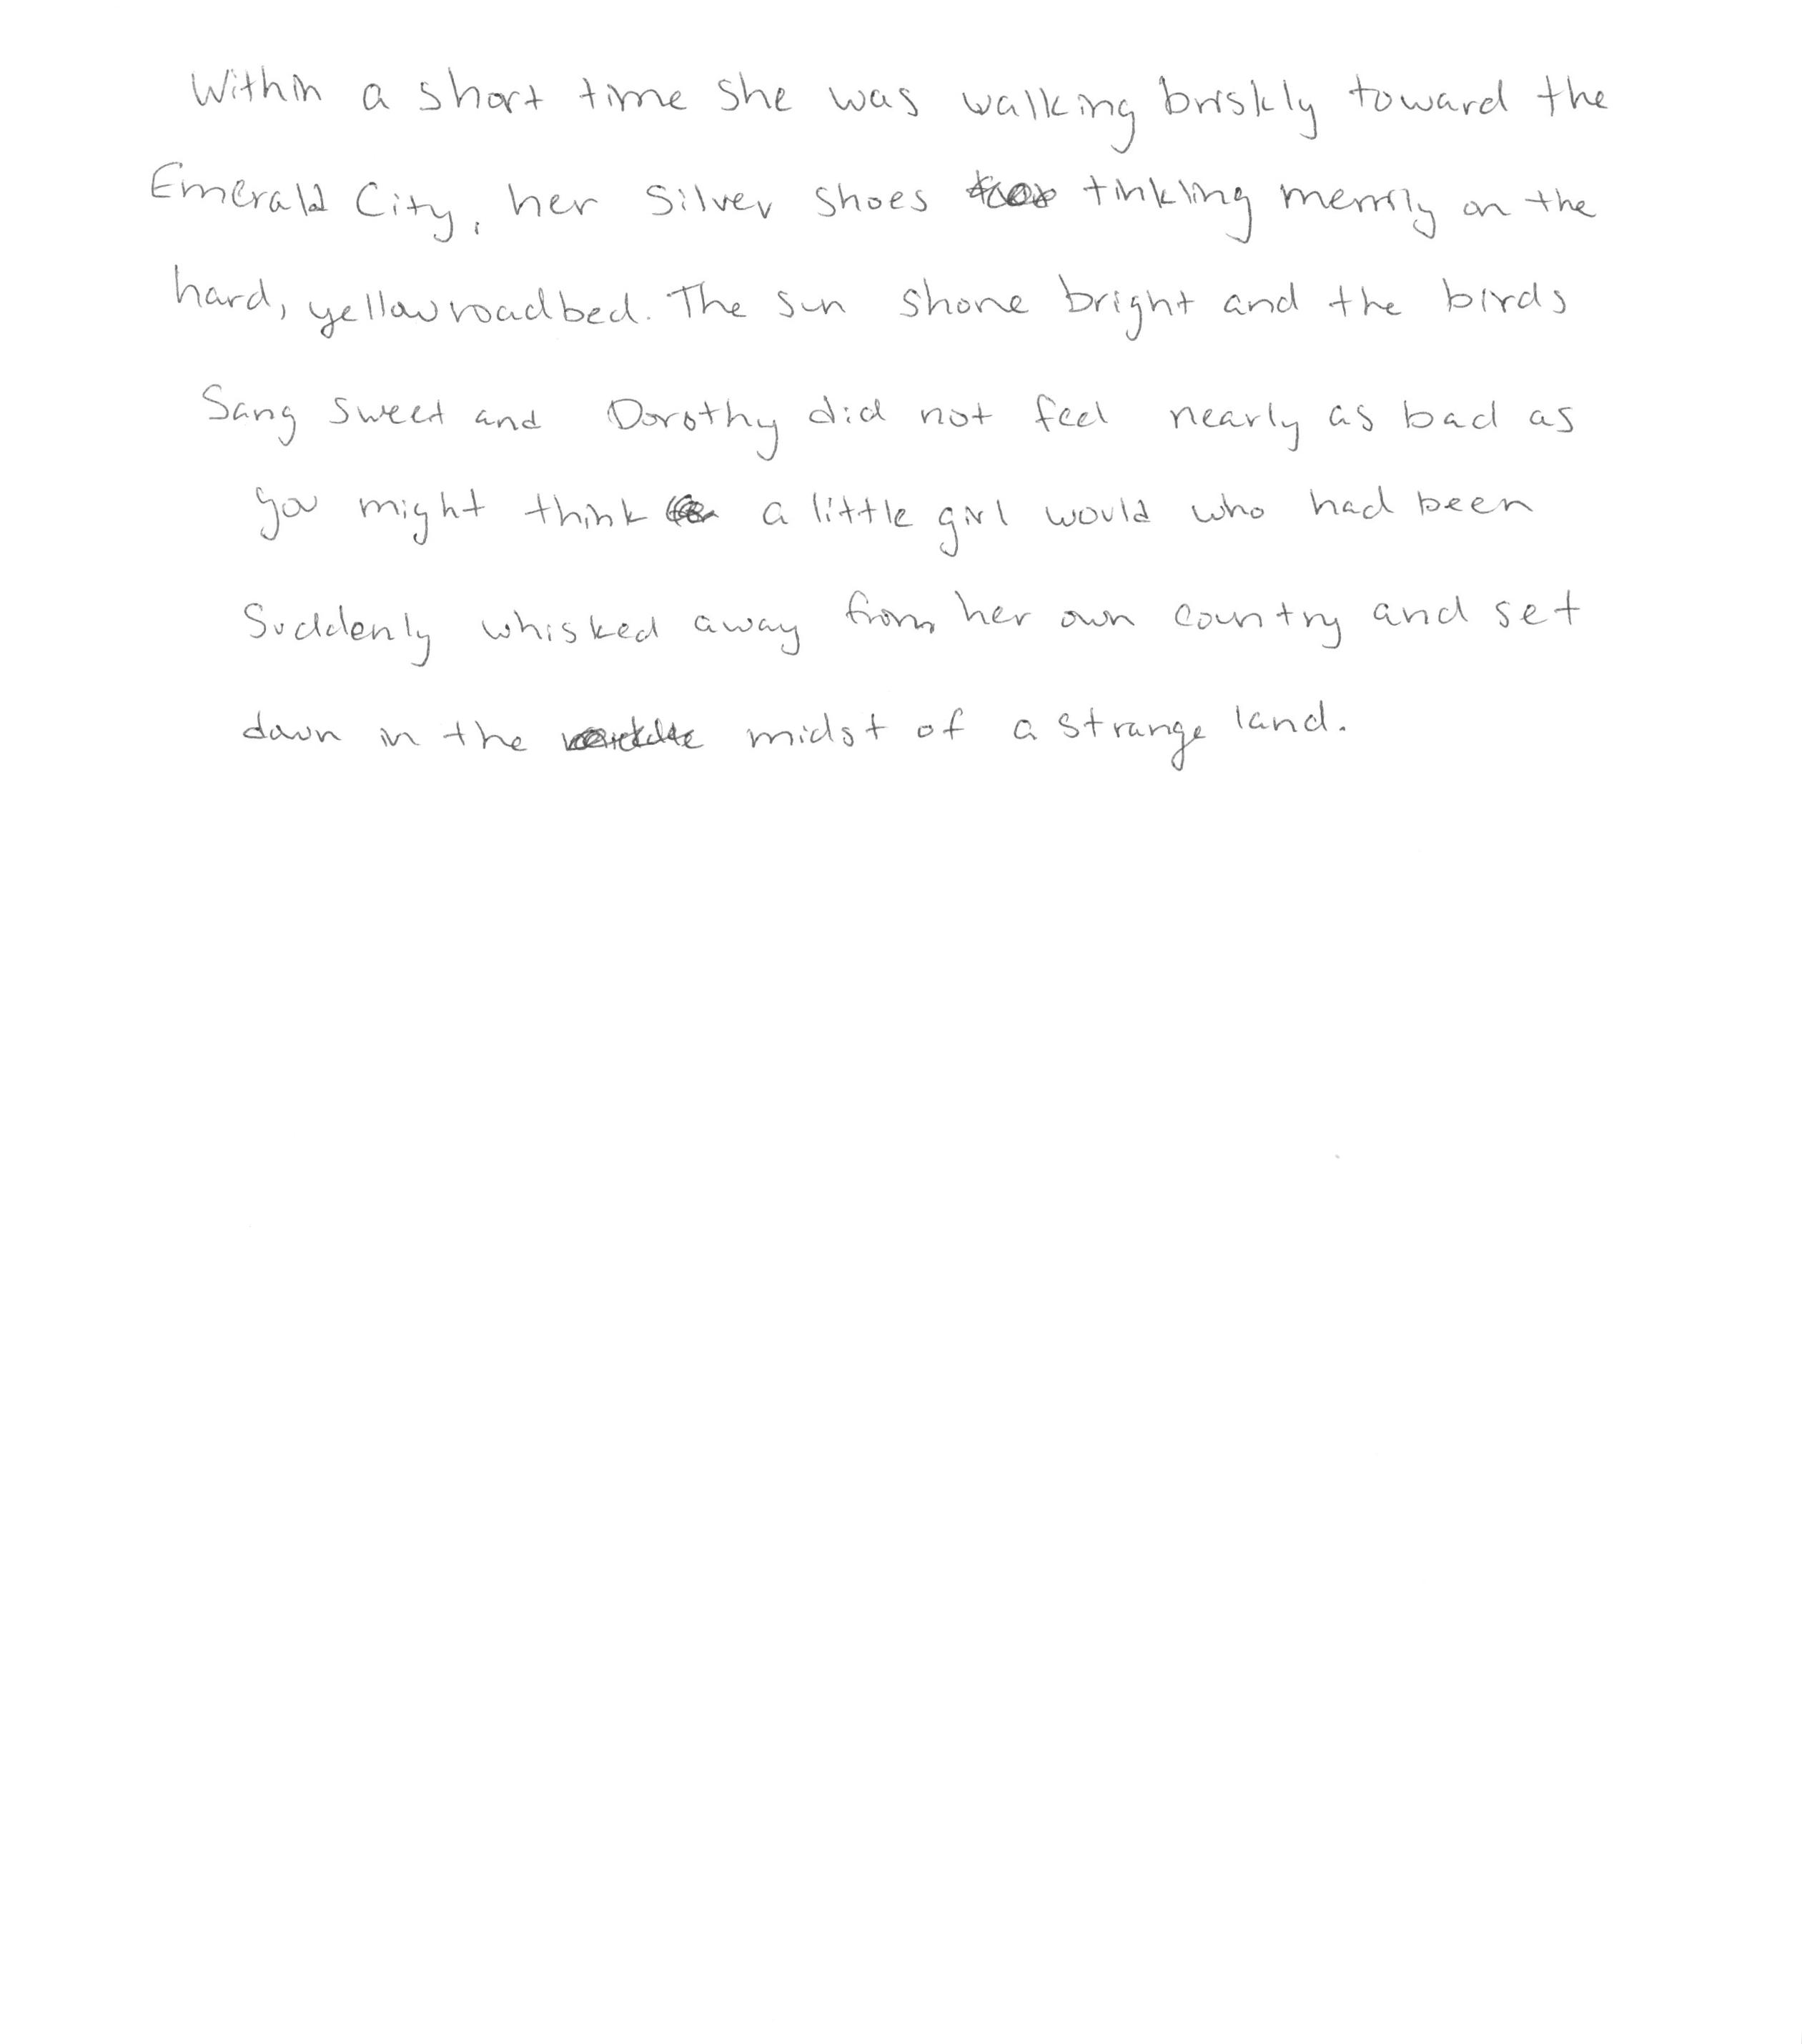 Within a short time she was walking briskly toward the
Emerald City, her Silver shoes tinkling merrily on the
hard, yellow roadbed. The sun shone bright and the birds
Sang sweet and Dorothy did not feel nearly as bad as
you might think a little girl would who had been
Suddenly whisked away from her own country and set
down in the midst of a strange land.